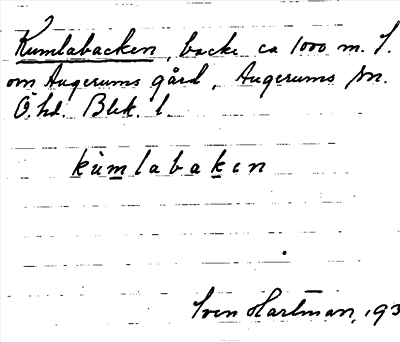 Kumlabacken, backe ca 1000 m. S.
om Augerums gård, Augerums sn.
Ö. hd. Blek. l.
kùmlabaken
Sven Hartman, 193